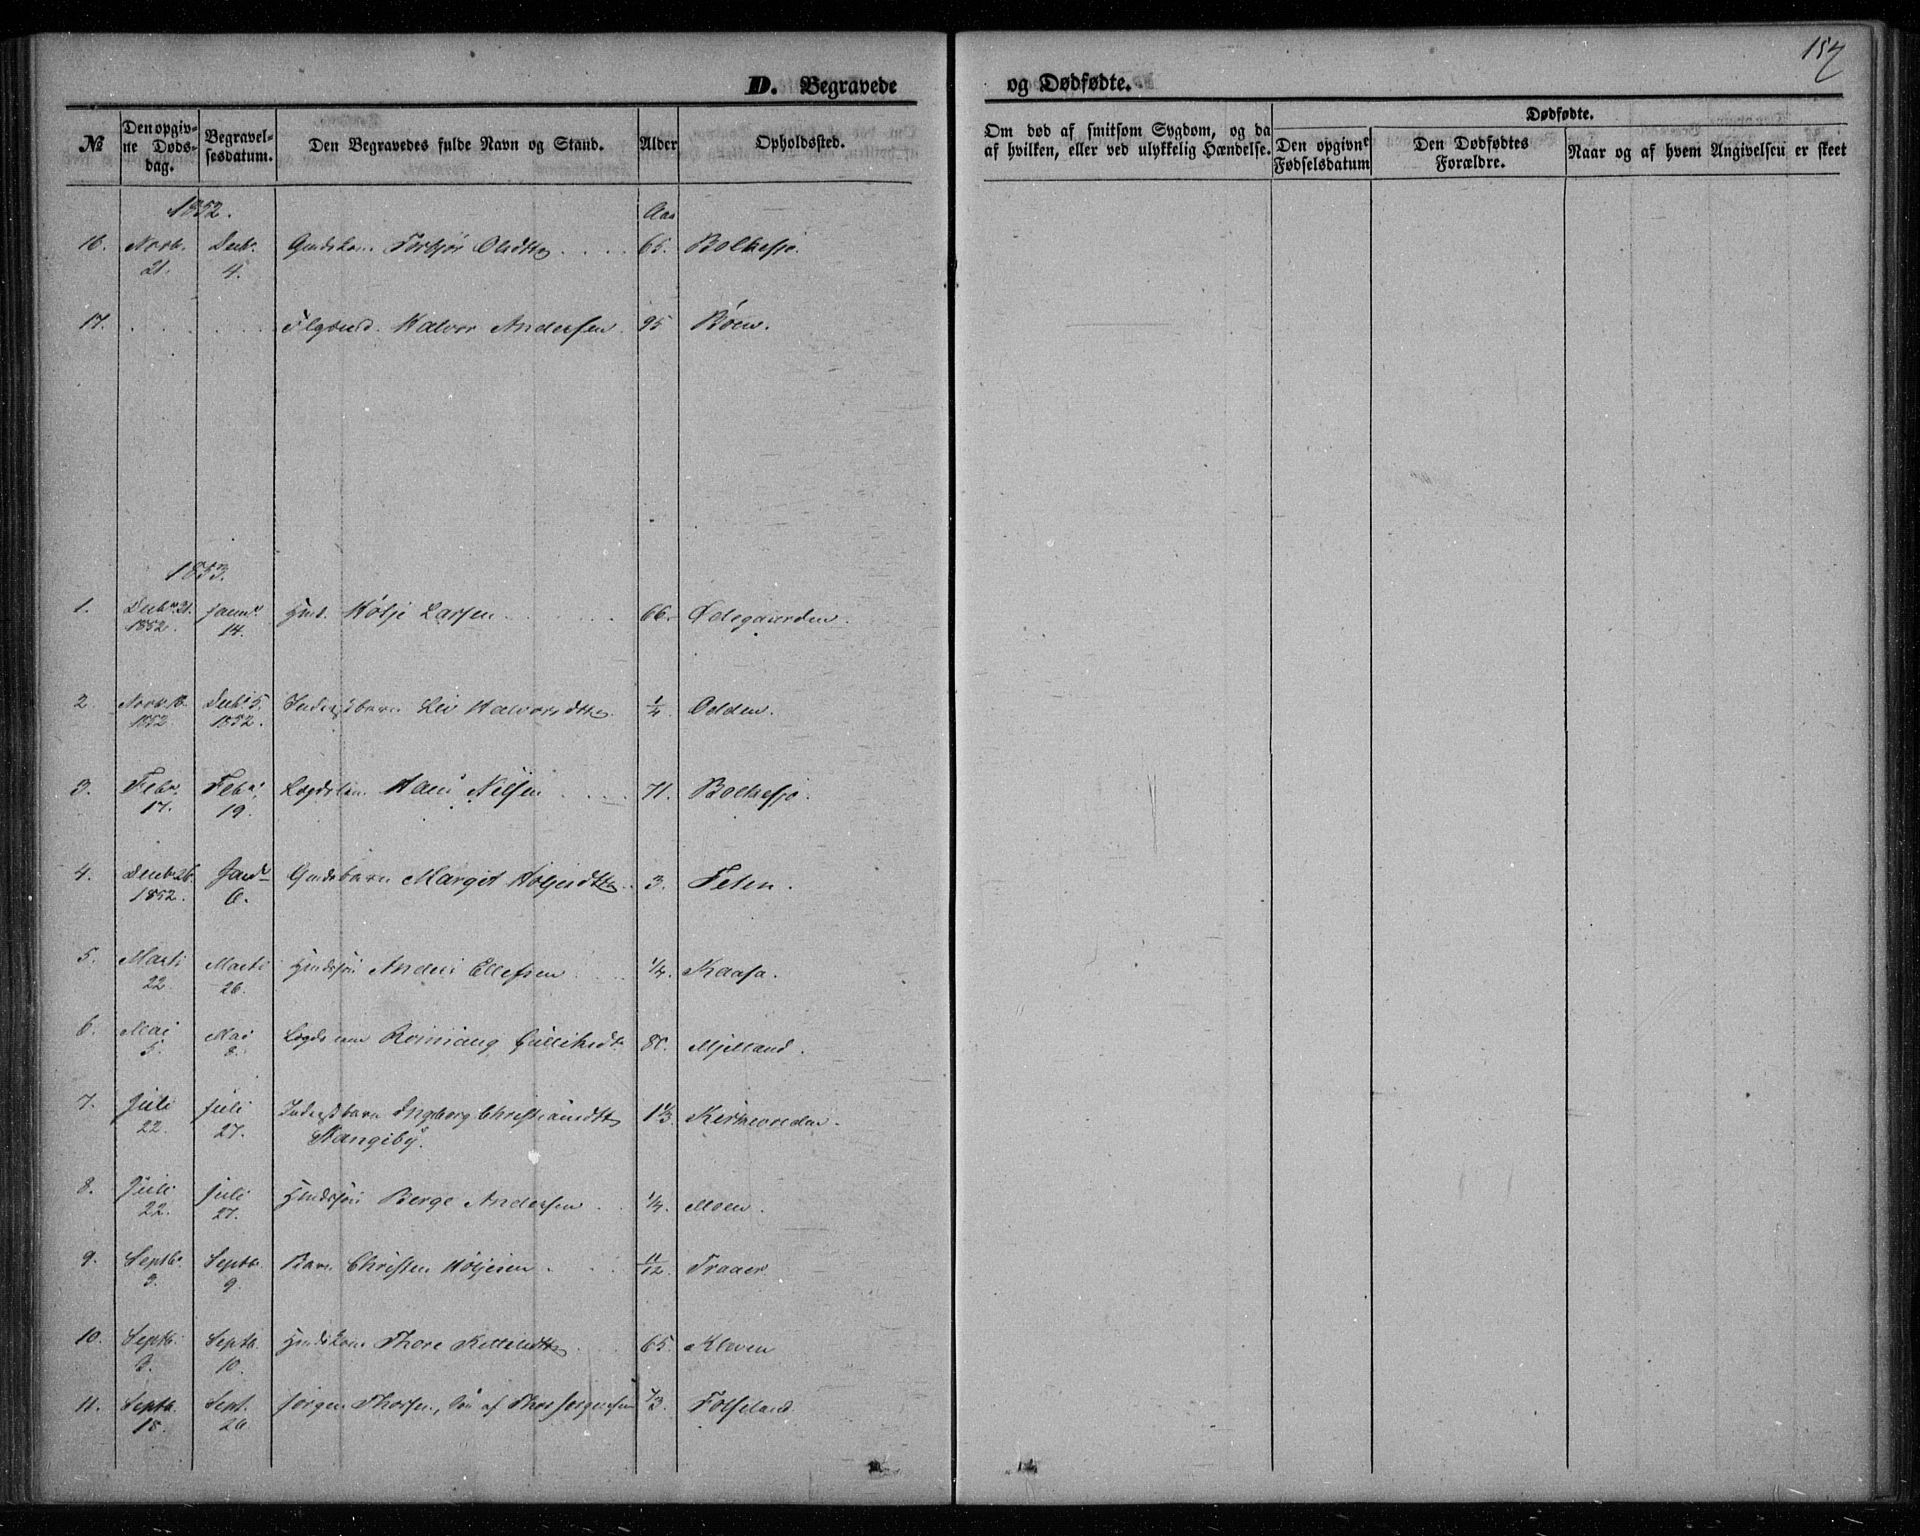 157
D. Begravede og Dødfødte.
№
Den opgiv-
ne Døds-
dag.
Begravel-
sesdatum.
Den Begravedes fulde Navn og Stand.
Alder
Opholdssted.
Om død af smitsom Sygdom, og da
af hvilken, eller ved ulykkelig Hændelse.
Dødfødte.
Den opgivne
Fødselsdatum
Den Dødfødtes
Forældre.
Naar og af hvem Angivelsen er skeet
1852.
Aar
16. Novbr. 21. Decbr. 4. Gmdskone Torbjør Olsdtr 65. Bolkesjø.
17. Halvor Andersen. 95 Bøen.
1853.
1. Decbr. 21. 1852. Januar 14. Hmd. Høljе Larsen 66. Ødegaarden.
2. Novbr. 18. 1852 Decbr. 5. 1852. Inderstbarn Liv Halvorsdtr 1/4. Odden.
3. Febr. 17. Febr. 19. Lægdslem Hans Nilsen 71. Bolkesjø.
4. Decbr. 26. 1852. Janr 6. Gmdsbarn Margit Høljesdtr 3. Feten.
5. Marts 22. Marts 26. Hmdssøn Anders Ellefsen 1/4. Kaasa.
6. Mai 5. Mai 8. Lægdslem Ronnaug Gullichsdtr Mjelland.
7. Juli 22. Juli 27. Inderstbarn Ingeborg Christiansdtr 1 1/3. Kirkevolden.
Stangeby.
8. Juli 22. Juli 27. Hmdssøn Berge Andersen 1/4. Moen.
9. Septbr. 3. Septbr. 9. Barn Christen Høljesen 11/12. Traaer.
10. Septbr. 3. Septbr. 10. Hmdskone Thore Kittelsdtr 65. Kleven
11. Septbr. 18. Sept. 26. Jørgen Thorsen, Søn af Thor Jørgensen 7/3. Folseland